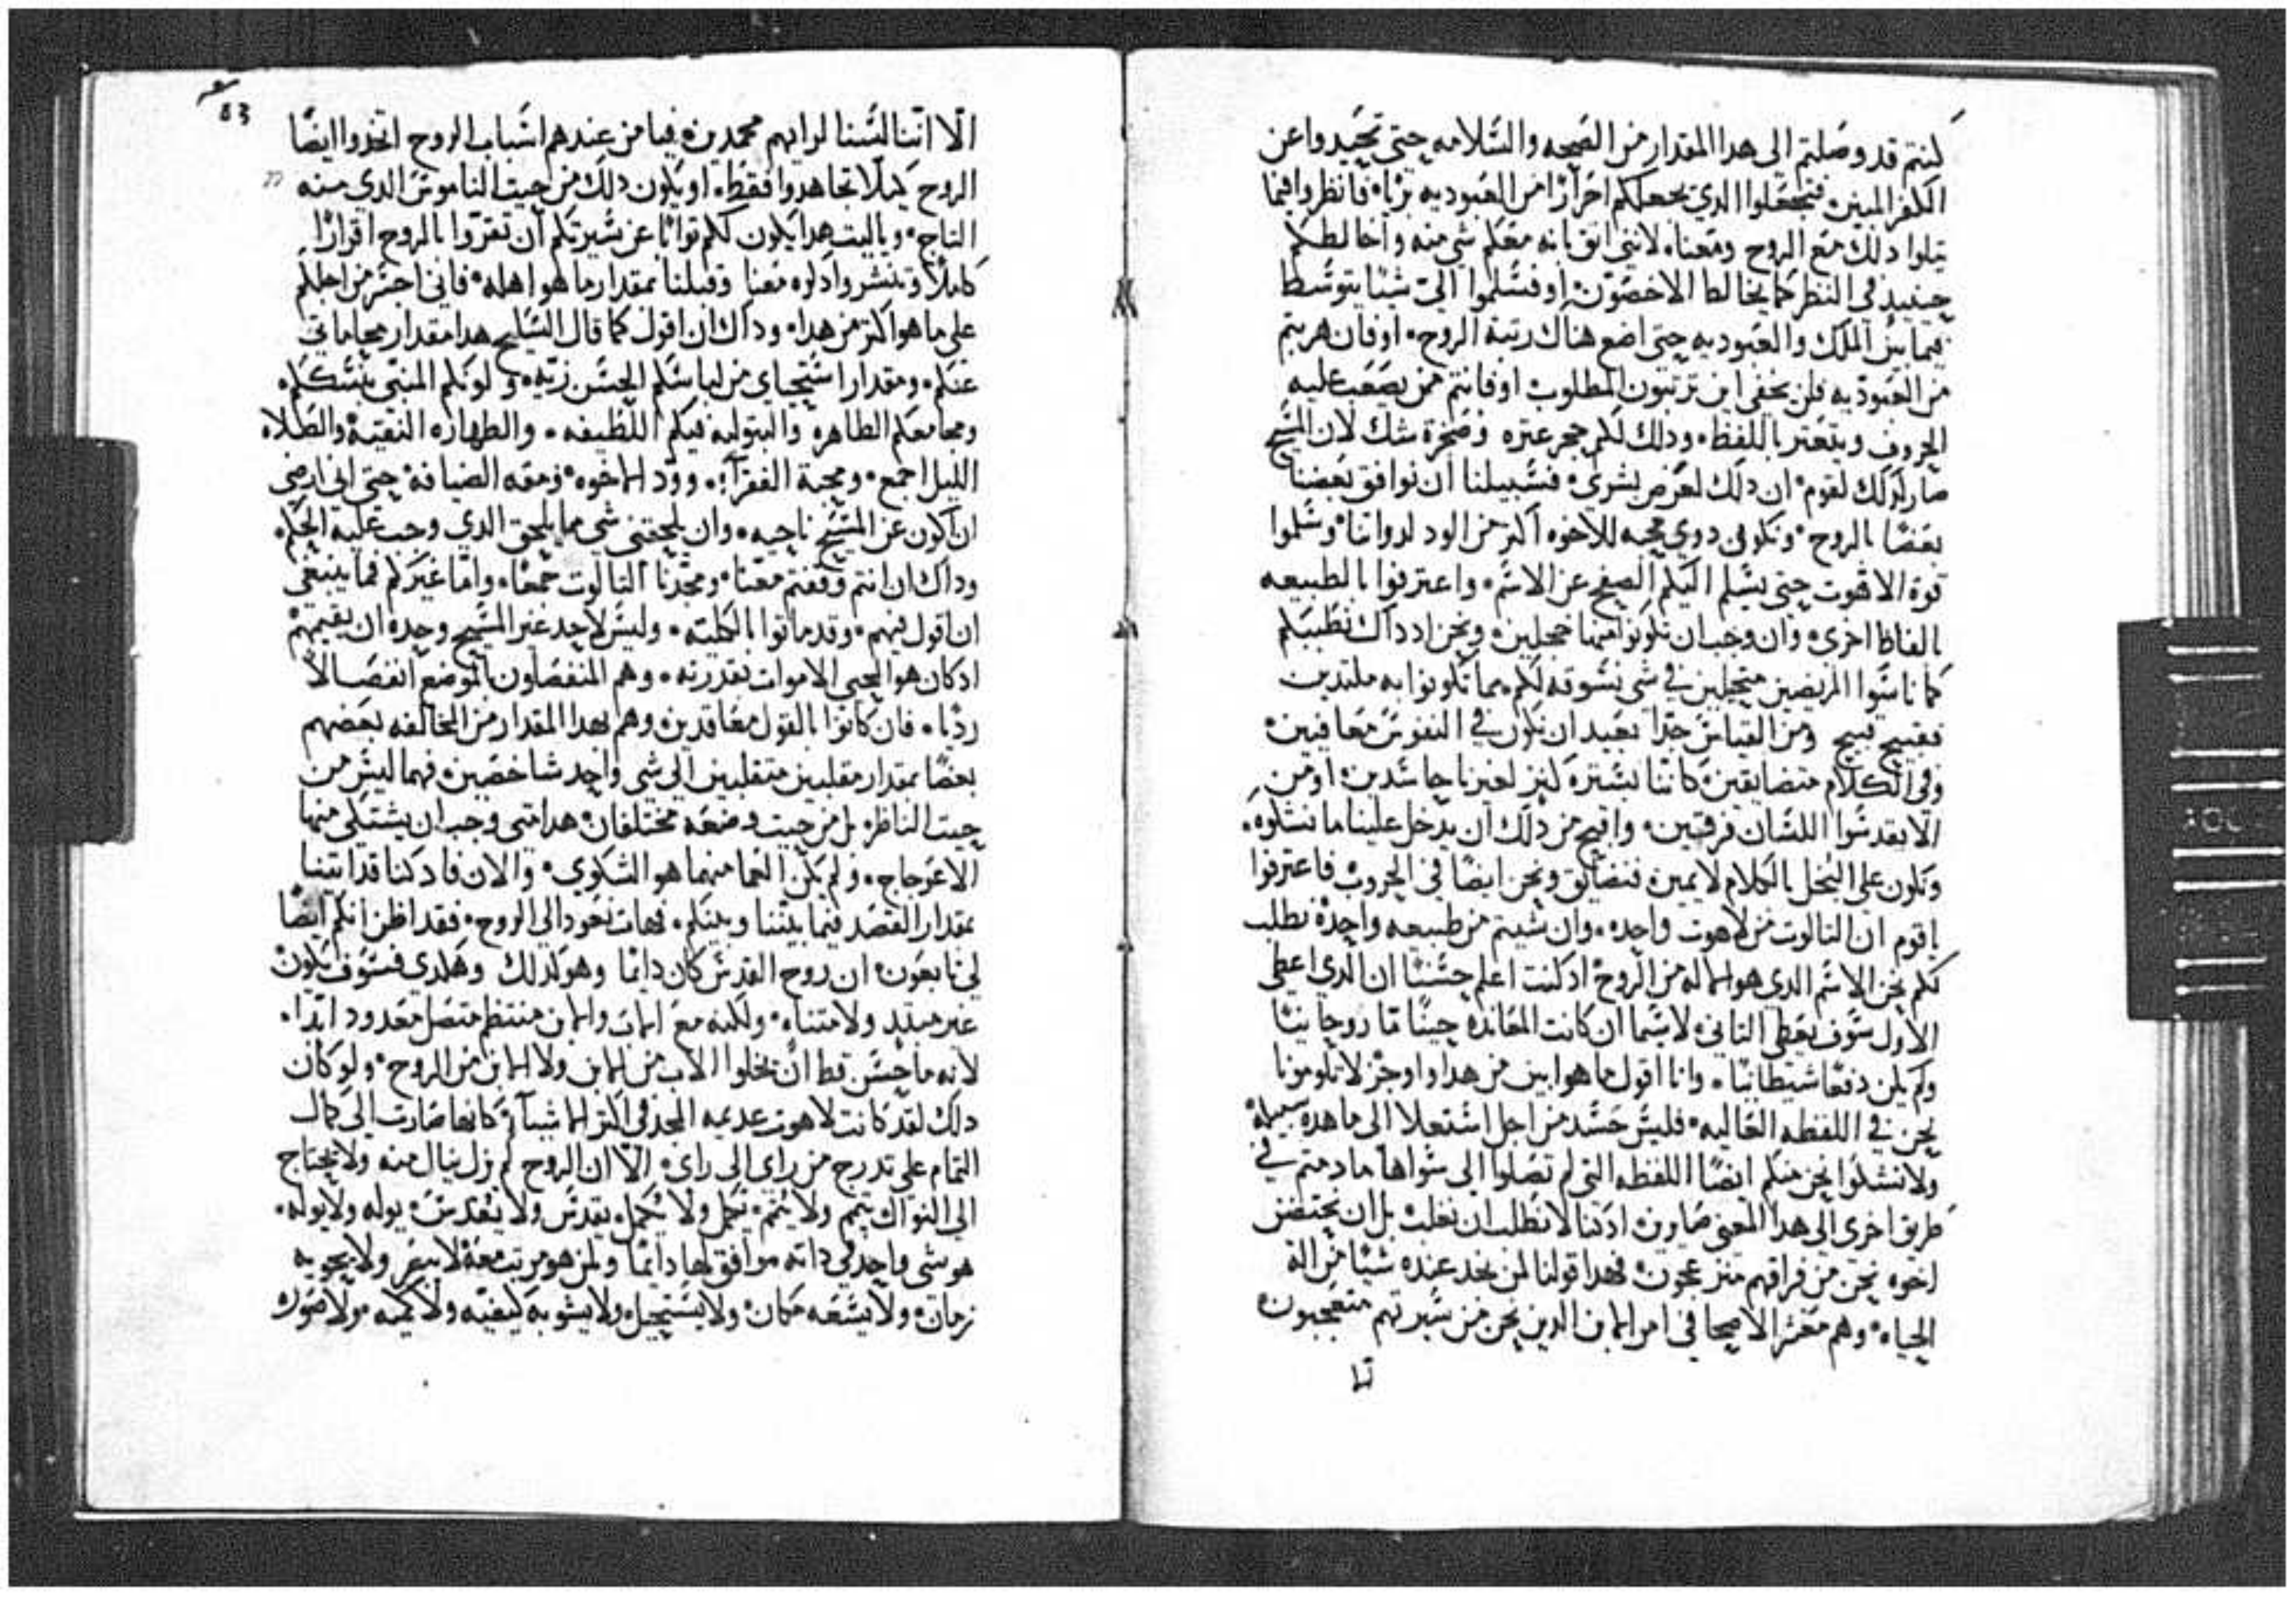 كنتم قد وصلتم الى هدا المقدار من الصحه والسلامه حتى تحيدوا عن
الكفر المبين فتجعلوا الدي يجعلكم احرارًا من العبوديه بريا، فانظروا فيما
يتلوا دلك مع الروح ومعنا، لانني اثق بانه معكم شي منه واخالطكم
حينيدٍ في النظر كما يخالط الاخصون، او فسلموا اليّ شيئًا يتوسط
فيما بين الملك والعبوديه حتى اضع هناك رتبة الروح، او فان هربتم
من العبوديه فلن يخفى اين ترتبون المطلوب او فانتم ممن يصعب عليه
الحروف ويتعتر باللفظ، ودلك لكم حجر عتره وصخرة شك لان المسيح
صار كدلك لقوم، ان دلك لعرض بشري، فسبيلنا ان نوافق بعضنا
بعضًا بالروح، ونكون دوي محبه للاخوه اكتر من الود لدواتنا، وسلموا
قوة الاهوت حتى يسلم اليكم الصفح عن الاسم، واعترفوا بالطبيعه
بالفاظ اخرى، وان وجب ان تكونوا منها خجلين، ونحن اد داك نطبيكم
كما ناسوا المريضين متحيلين في شي نسوقه لكم مما تكونوا به ملتدين
فقبيح قبيح ومن القياس جدًا بعيد ان نكون في النفوس معافيين،
وفي الكلام متضايقين كاننا بسترة كنز لغيرنا حاسدين، او من
الا بقدسوا اللسان فرقتين، واقبح من دلك ان يدخل علينا ما نشلوه،
وتكون على البخل بالكلام لايمين فنتضايق ونحن ايضًا في الحروف فاعترفوا
ياقوم ان التالوت من لاهوت واحده، وان شيتم من طبيعه واحدة نطلب
لكم نحن الاسم الدي هو الاله من الروح اد كنت اعلم حسنًا ان الدي اعطى
الاول سوف يعطي التاني، لاسيما ان كانت المعانده حينًا ما روحانيتًا
ولم يكن دفعًا شيطانيًا، وانا اقول ما هو ابين من هدا واوجز لا تلومونا
نحن في اللفظه العاليه، فليس حسد من اجل استعلا الى ما هده سبيله
ولا نشكوا نحن منكم ايضًا اللفظه التي لم تصلوا الى سواها مادمتم في
طريق اخرى الى هدا المعنى صاروت، ادكنا لا نطلب ان نغلب بل ان نحتضن
اخوه نحن من فراقهم منزعجون، فهدا قولنا لمن يجد عنده شيئًا من اله
الحياه، وهم معشر الاصحا في امر الابن الدين نحن من سيرتهم متعجبون،
الا اننا لسنا لرايهم محمدين، فيا من عندهم اسباب الروح اتخدوا ايضًا
الروح كيلا تجاهدوا فقط، او يكون دلك من حيت الناموس الدي منه
التاج، وياليت هدا يكون لكم توابًا عن سيرتكم ان تقروا بالروح اقرارًا
كاملاً وتنشروا دلوه معنا وقبلنا بمقدار ما هو اهله، فاني اجسر من اجلكم
على ما هو اكتر من هدا، وداك ان اقول كما قال السليح هدا مقدار محاماتي
عنكم، ومقدار استحياي من لباسكم الحسن زيه، ولونكم المنبي بنسككم
ومجامعكم الطاهره والبتوليه فيكم اللطيفه، والطهاره النقيه، والصلاه
الليل اجمع، ومحبة الفقرآ، وود الاخوه، ومقه الضيافه، حتى اني ارضى
ان اكون عن المسيح ناحيه، وان يلحقني شي مما يلحق الدي وجب عليه الحكم،
وداك ان انتم وقفتم معنا، ومجدنا التالوت جمعًا، واما غيركم فما ينبغي
ان اقول فيهم، وقد ماتوا بالكليه، وليس لاحد غير المسيح وحده ان يقيمهم
ادكان هو المحيي الاموات بقدرته، وهم المنفصلون بالموضع انفصالاً
رديًا، فان كانوا بالقول معاقدين، وهم بهدا المقدار من المخالفه بعضهم
بعضًا بمقدار مقلبين متقلبين الى شي واحد شاخصين، فهما ليس من
حيت الناظر، بل من حيت وضعه مختلفان، هدا متى وجب ان يشتكى منها
الاعوجاج، ولم يكن العما منهما هو الشكوى، والان فادكنا قد اتينا
بمقدار القصد فيما بيننا وبينكم، فهات نعود الى الروح، فقد اظن انكم ايضًا
لي تابعون، ان روح القدس كان دايمًا وهو كدلك وهكدى فسوف يكون
غير مبتد ولا متناه، ولكنه مع الاب والابن منتظم متصل معدود ابدًا،
لانه ما حسن قط ان يخلوا الاب من الابن ولا الابن من الروح، ولو كان
دلك لقد كانت لاهوت عديمه المجد في اكتر الاشيآ، كانها صارت الى كمال
التمام على تدرج من راي الى راي، الا ان الروح لم يزل ينال منه ولا يحتاج
الى النوال يتمم ولا يتمم، يكمل ولا يكمل، يقدس ولا يقدس، يوله ولا يوله،
هو شي واحد في داته موافق لها دايمًا ولمن هو مرتب معه لا يتغير ولا يحويه
زمان، ولا يسعه مكان، ولا يستحيل، ولا يشوبه كيفيه ولا كميه ولا صوره